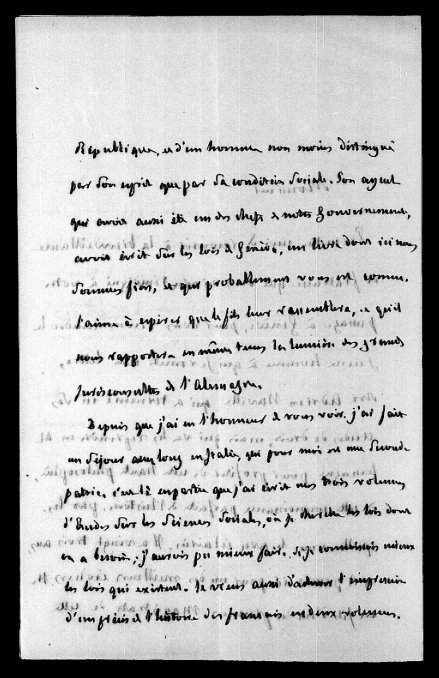 République, et d'un homme non moins distingué
par son esprit que par sa condition sociale. Son ayeul
qui avoit aussi été un des chefs de notre Gouvernement,
avoit écrit sur les lois de Genève, un livre dont ici nous
sommes fiers, et qui probablement vous est connu.
J'aime à espérer que le fils leur ressemblera, et qu'il
nous rapportera en même tems les lumières des grands
Jurisconsultes de l'Allemagne.
Depuis que j'ai eu l'honneur de vous voir, j'ai fait
un séjour assez long en Italie, qui pour moi est une seconde
patrie. c'est là en partie que j'ai écrit mes trois volumes
d'Etudes sur les Sciences Sociales, où je des lois dont
on a besoin; j'aurois pu mieux fait, si je connoissois mieux
les lois qui existent. Je viens aussi d'achever l'impression
d'un précis de l'histoire des français en deux volumes.